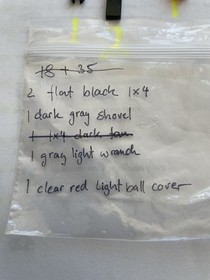 18 + 35
2 flat black 1x4
1 dark gray shovel
1 1x4 dark tan
1 gray light wranch
1 clear red light ball cover